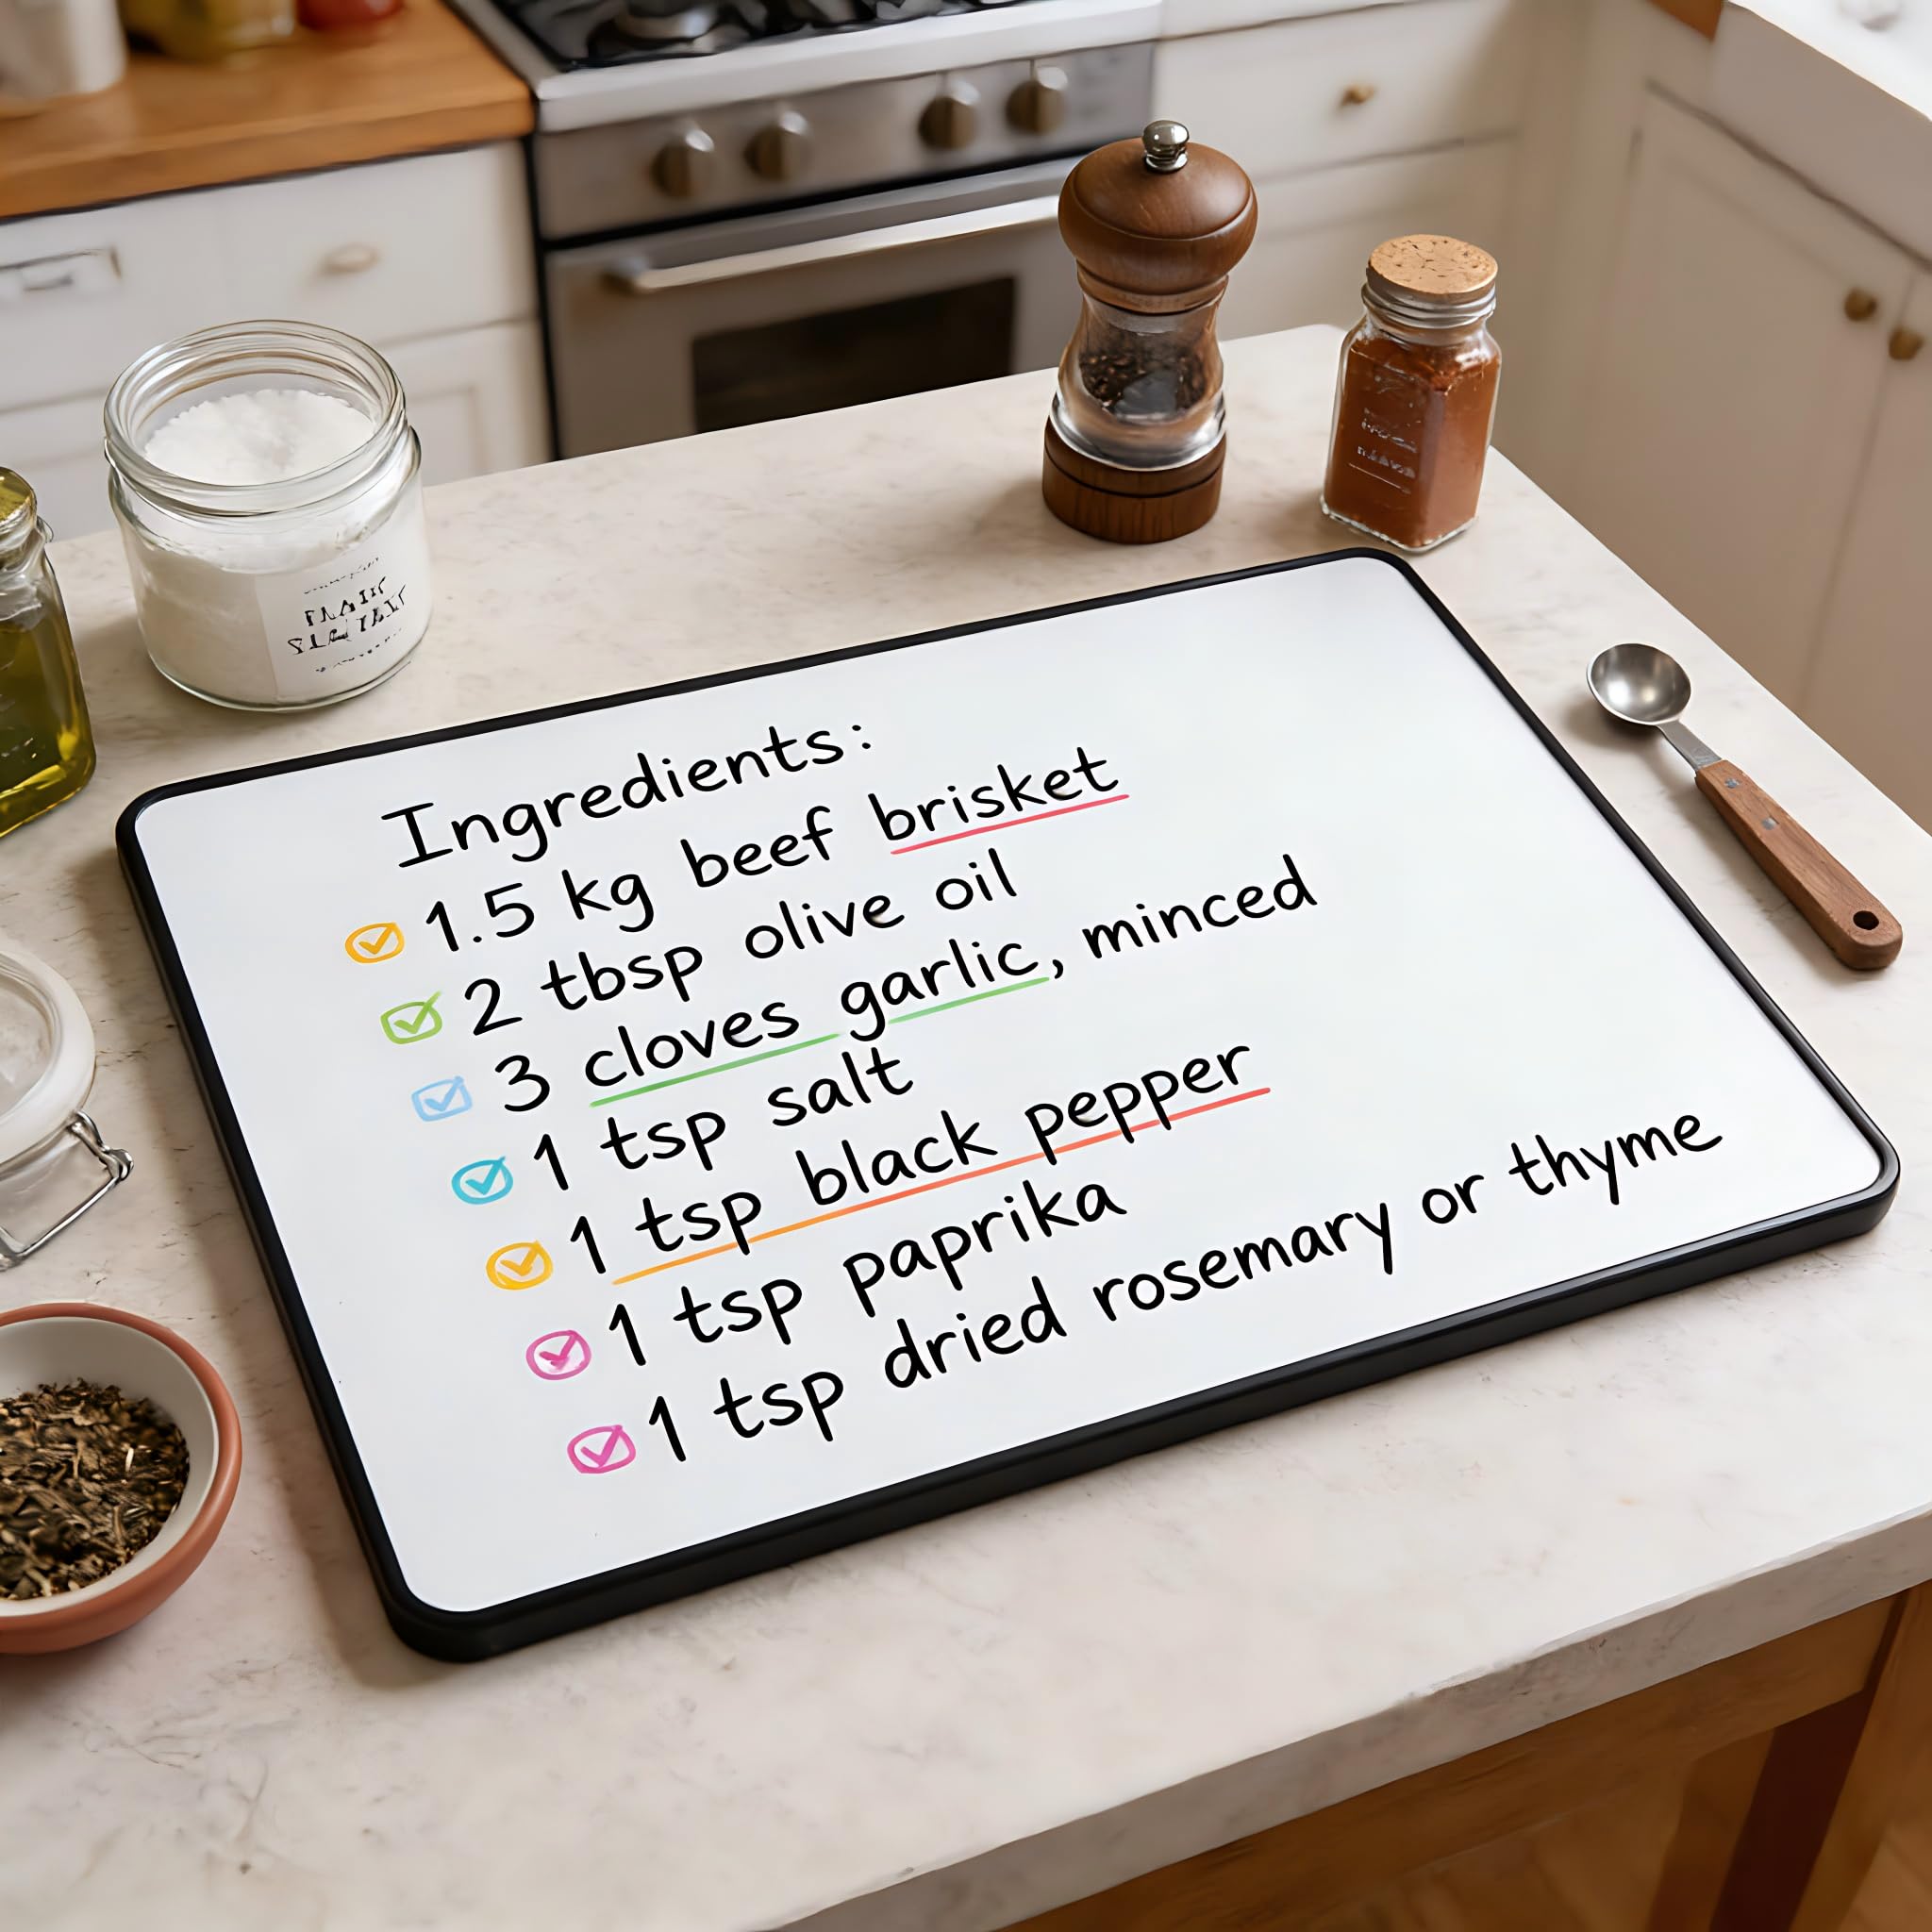 Ingredients:
1.5 kg beef brisket
2 tbsp olive oil
3 cloves garlic, minced
1 tsp salt
1 tsp black pepper
1 tsp paprika
1 tsp dried rosemary or thyme